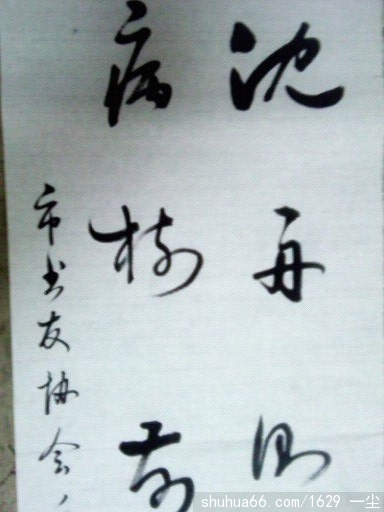 沈舟侧
病树前
市书友协会
shuhua66.com/1629 一尘